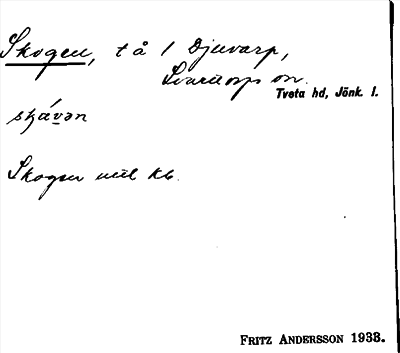 Skogen, t å 1 Djuvarp,
Svarttorps sn.
Tveta hd, Jönk. l.
skåvən
Skogen utl kb.
FRITZ ANDERSSON 1933.